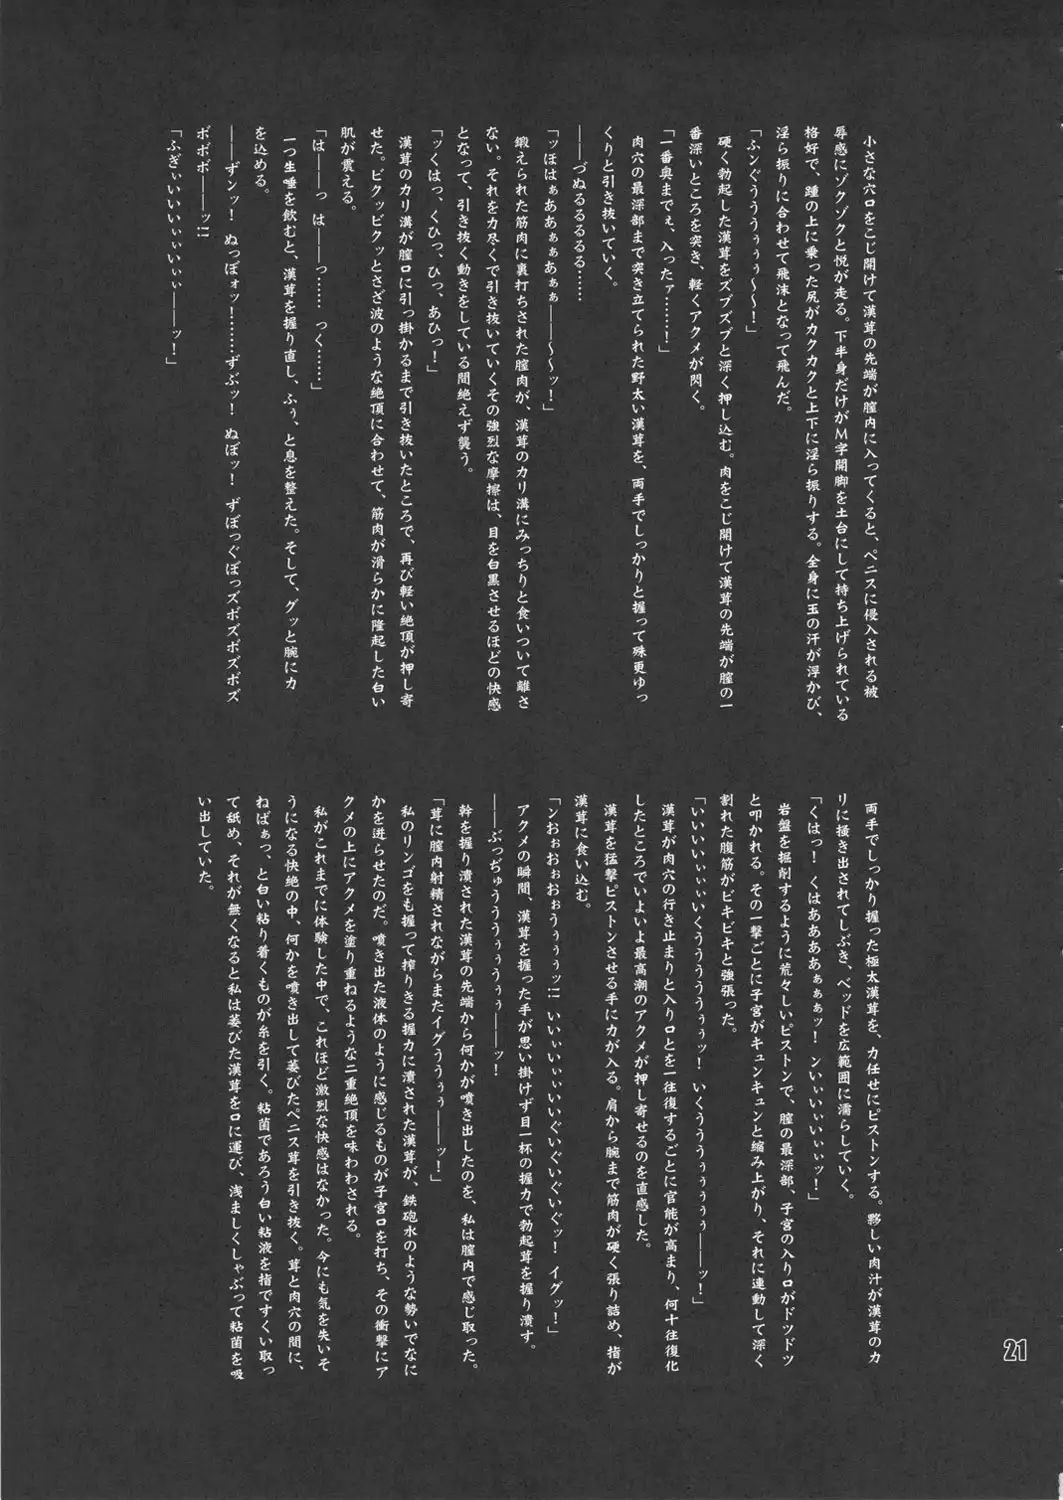 小さな穴口をこじ開けて漢茸の先端が膣内に入ってくると、ペニスに侵入される被
辱感にゾクゾクと悦が走る。下半身だけがＭ字開脚を土台にして持ち上げられている
格好で、踵の上に乗った尻がカクカクと上下に淫ら振りする。全身に玉の汗が浮かび、
淫ら振りに合わせて飛沫となって飛んだ。
「ふンぐううううぅぅぅ～～！」
硬く勃起した漢茸をズブズブと深く押し込む。肉をこじ開けて漢茸の先端が膣の一
番深いところを突き、軽くアクメが閃く。
「一番奥までぇ、入ったァ……！」
肉穴の最深部まで突き立てられた野太い漢茸を、両手でしっかりと握って殊更ゆっ
くりと引き抜いていく。
――づぬるるるるる……
「ッほはぁああぁぁあぁぁ――～～ッ！」
鍛えられた筋肉に裏打ちされた膣肉が、漢茸のカリ溝にみっちりと食いついて離さ
ない。それを力尽くで引き抜いていくその強烈な摩擦は、目を白黒させるほどの快感
となって、引き抜く動きをしている間絶えず襲う。
「ッくはっ、くひっ、ひっ、あひっ！」
漢茸のカリ溝が膣口に引っ掛かるまで引き抜いたところで、再び軽い絶頂が押し寄
せた。ビクッビクッとさざ波のような絶頂に合わせて、筋肉が滑らかに隆起した白い
肌が震える。
「は――っ　は――っ……　っく……」
一つ生唾を飲むと、漢茸を握り直し、ふぅ、と息を整えた。そして、グッと腕に力
を込める。
――ずンッ！　ぬっぽォッ！……ずぶッ！　ぬぽッ！　ずぼっぐぼっズボズボズボズ
ボボボ――ッ!!
「ふぎぃいいいぃぃいぃぃ――ッ！」
両手でしっかり握った極太漢茸を、力任せにピストンする。夥しい肉汁が漢茸のカ
リに掻き出されてしぶき、ベッドを広範囲に濡らしていく。
「くはっ！　くはああああぁぁぁッ！　ンいぃいぃいぃぃッ！」
岩盤を掘削するように荒々しいピストンで、膣の最深部、子宮の入り口がドツドツ
と叩かれる。その一撃ごとに子宮がキュンキュンと縮み上がり、それに連動して深く
割れた腹筋がビキビキと強張った。
「いいいいぃぃぃいくうううううぅぅッ！　いくうううぅぅぅぅぅ――ッ！」
漢茸が肉穴の行き止まりと入り口とを一往復するごとに官能が高まり、何十往復化
したところでいよいよ最高潮のアクメが押し寄せるのを直感した。
漢茸を猛撃ピストンさせる手に力が入る。肩から腕まで筋肉が硬く張り詰め、指が
漢茸に食い込む。
「ンおぉおぉおぉぅうぅぅッ!!　いいぃいぃぃいいぐいぐいぐいぐッ！　イグッ！」
アクメの瞬間、漢茸を握った手が思い掛けず目一杯の握力で勃起茸を握り潰す。
――ぶっぢゅうううぅぅうぅぅ――ッ！
幹を握り潰された漢茸の先端から何かが噴き出したのを、私は膣内で感じ取った。
「茸に膣内射精されながらまたイグううぅぅ――ッ！」
私のリンゴをも握って搾りきる握力に潰された漢茸が、鉄砲水のような勢いでなに
かを迸らせたのだ。噴き出た液体のように感じるものが子宮口を打ち、その衝撃にア
クメの上にアクメを塗り重ねるような二重絶頂を味わわされる。
私がこれまでに体験した中で、これほど激烈な快感はなかった。今にも気を失いそ
うになる快絶の中、何かを噴き出して萎びたペニス茸を引き抜く。茸と肉穴の間に、
ねばぁっ、と白い粘り着くものが糸を引く。粘菌であろう白い粘液を指ですくい取っ
て舐め、それが無くなると私は萎びた漢茸を口に運び、浅ましくしゃぶって粘菌を吸
い出していた。
21